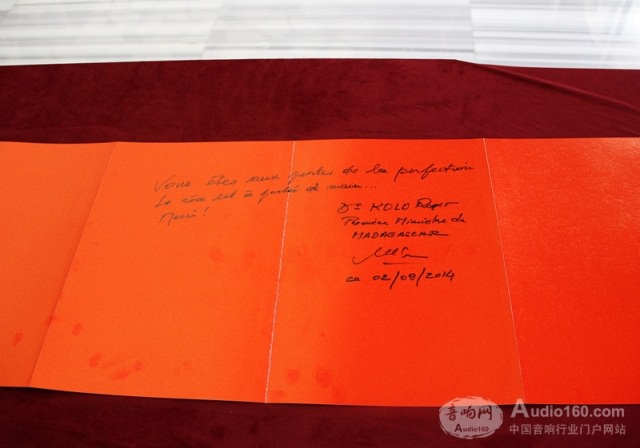 Vous êtes aux portes de la perfection
Le rêve est à portée de main...
Merci !
Dr KOLO Roger
Premier Ministre de
MADAGASCAR
ce 02/09/2014
音响网
Audio160
Audio160.com
中国音响行业门户网站